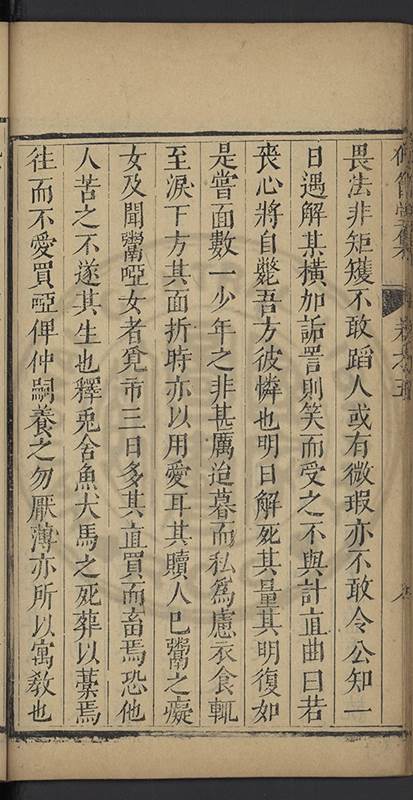 畏法非矩矱不敢蹈人或有微瑕亦不敢令公知一
日遇解某橫加詬詈則笑而受之不與計直曲曰若
喪心將自斃吾方彼憐也明日解死其量其明復如
是嘗面數一少年之非甚厲迨暮而私爲慮衣食輒
至淚下方其面折時亦以用愛耳其贖人已鬻之癡
女及聞鬻啞女者覓市三日多其直買而畜焉恐他
人苦之不遂其生也釋兎舍魚犬馬之死葬以藁焉
徃而不愛買啞俾仲嗣養之勿厭薄亦所以寓敎也